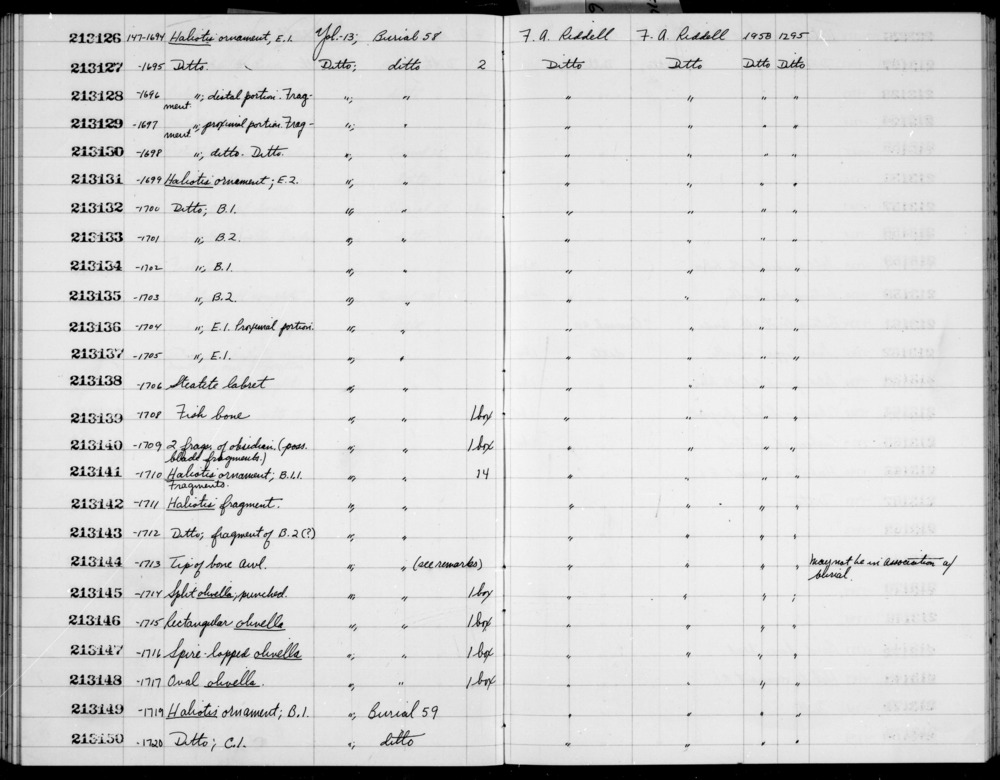 213126 147-1694 Haliotis ornament, E.1. Yol-13; Burial 58 F. A. Riddell F. A. Riddell 1950 1295
213127 -1695 Ditto. Ditto; ditto 2 Ditto Ditto Ditto Ditto
213128 -1696 "; distal portion. Frag-
ment "; " " " " "
213129 -1697 "; proximal portion. Frag-
ment "; " " " " "
213130 -1698 "; ditto. Ditto. "; " " " " "
213131 -1699 Haliotis ornament; E.2. "; " " " " "
213132 -1700 Ditto; B.1. "; " " " " "
213133 -1701 "; B.2. "; " " " " "
213134 -1702 "; B.1. "; " " " " "
213135 -1703 "; B.2. "; " " " " "
213136 -1704 "; E.1. Proximal portion. "; " " " " "
213137 -1705 "; E.1. "; " " " " "
213138 -1706 Steatite labret "; " " " " "
213139 -1708 Fish bone "; " 1 box " " " "
213140 -1709 2 frags. of obsidian. (poss.
blade fragments.) "; " 1 box " " " "
213141 -1710 Haliotis ornament; B.1.1.
Fragments. "; " 14 " " " "
213142 -1711 Haliotis fragment. "; " " " " "
213143 -1712 Ditto; fragment of B.2 (?) "; " " " " "
213144 -1713 Tip of bone awl. "; " (see remarks) " " " " May not be in association w/
burial.
213145 -1714 Split olivella; punched. "; " 1 box " " " "
213146 -1715 Rectangular olivella "; " 1 box " " " "
213147 -1716 Spire-lopped olivella "; " 1 box " " " "
213148 -1717 Oval olivella. "; " 1 box " " " "
213149 -1719 Haliotis ornament; B.1. "; Burial 59 " " " "
213150 -1720 Ditto; C.1. "; ditto " " " "